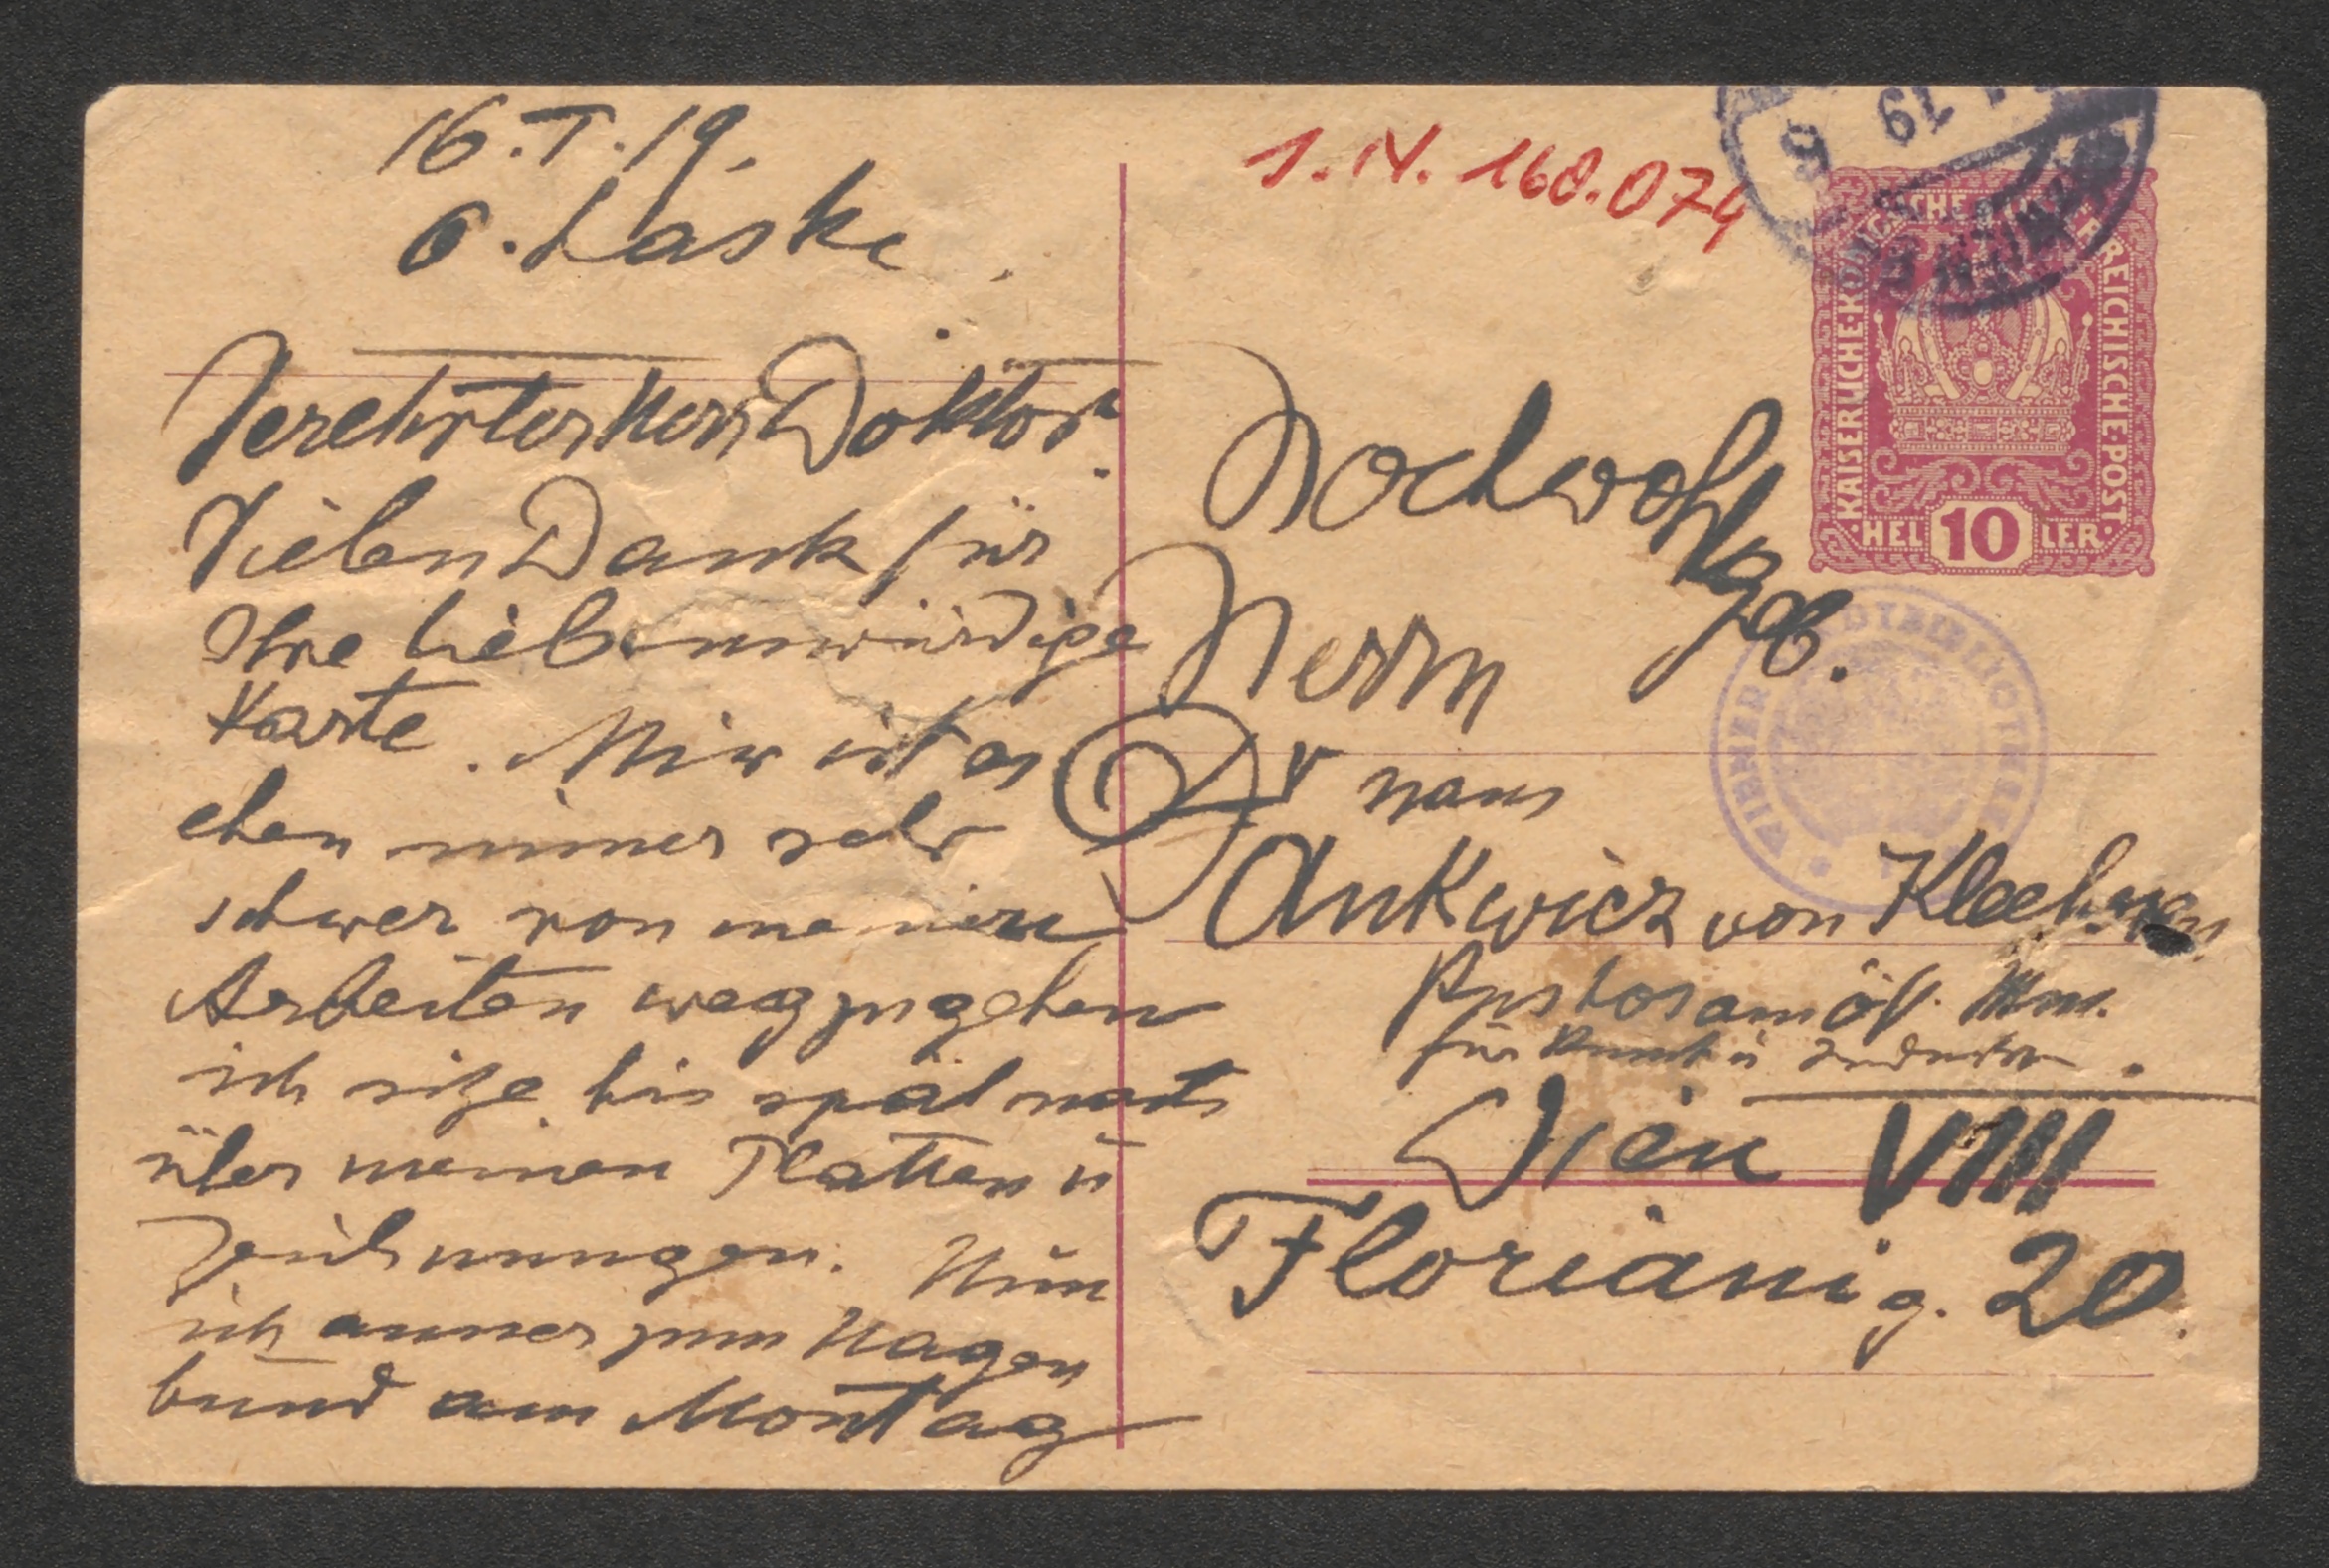 16.I.19.
O. Laske
Verehrter Herr Doktor.
Vielen Dank für
Ihre liebenswürdige
Karte. Mir ist es
eben immer sehr
schwer von meinen
Arbeiten wegzugehen
ich sitze bis spät nachts
über meinen Platten u
Zeichnungen.
ich zum Hagen
bund am Montag
J.N. 168.074
19
6
WIEN
KAISERLICHE·KÖNIGLICHE ÖSTERREICHISCHE·POST·
HEL 10 LER
Hochwohlgeb.
Herrn
Dr Hans
Ankwicz von Kleehoven
Kustos am öst. Mus.
für Kunst u Industrie.
Wien VIII
Florianig. 20.
WIENER STADTBIBLIOTHEK